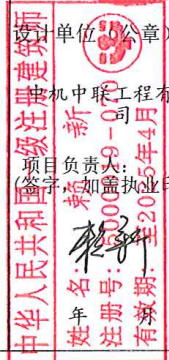 设计单位（公章）
中机中联工程有
司
项目负责人：
(签字，加盖执业印
年 月
中华人民共和国一级注册建筑师
姓名：赖新
注册号：
有效期：至2025年4月